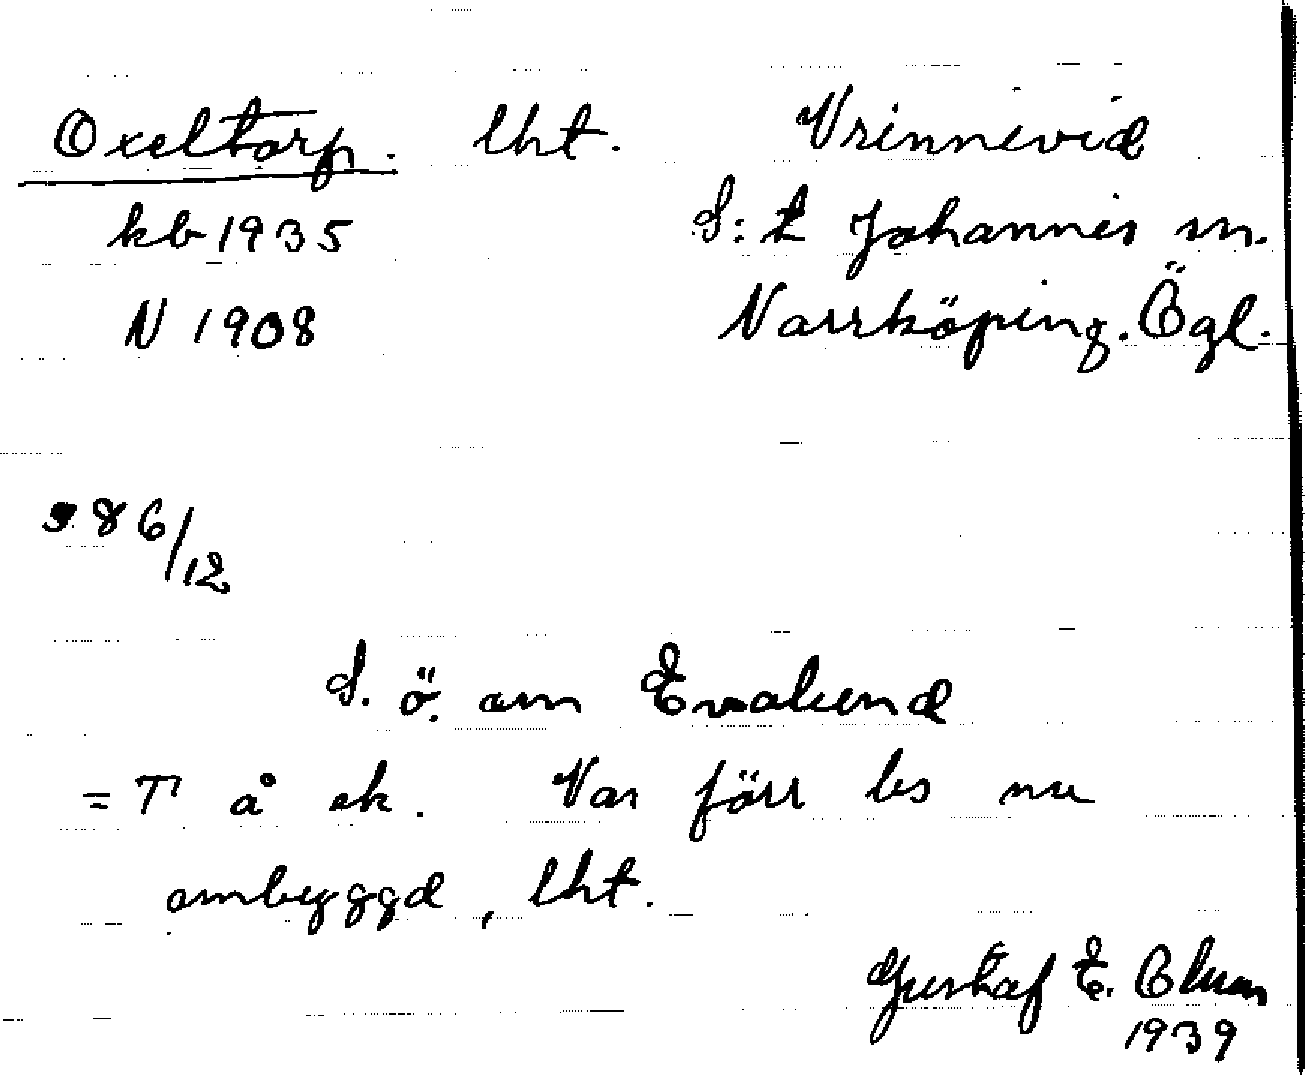 Oxeltorp. lht. Vrinnevid
kb 1935 S:t Johannis sn.
N 1908 Norrköping. Ögl.
986/12
S. ö. om Evalund
= T å ek. Var förr bs nu
ombyggd, lht.
Gustaf E. Olson
1939